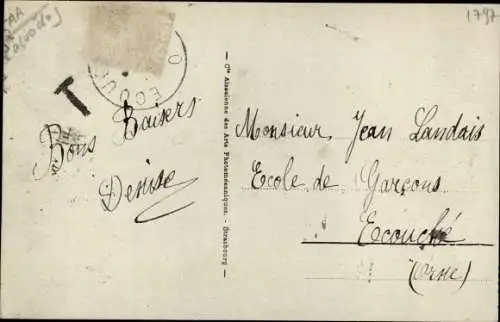 1797
T
ECOUC
Bons Baisers
Denise
Cie Alsacienne des Arts Photomécaniques - Strasbourg
Monsieur Jean Landais
Ecole de Garçons
Ecouché
(Orne)